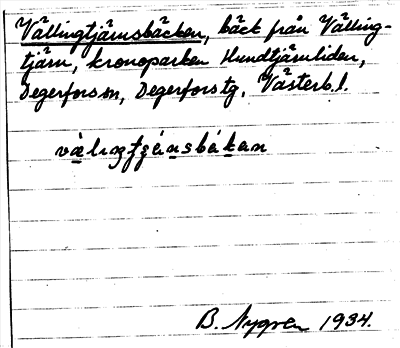 Vällingtjärnsbäcken, bäck från Välling-
tjärn, kronoparken Hundtjärnliden,
Degerfors sn, Degerfors tg. Västerb. l.
B. Nygren 1934.